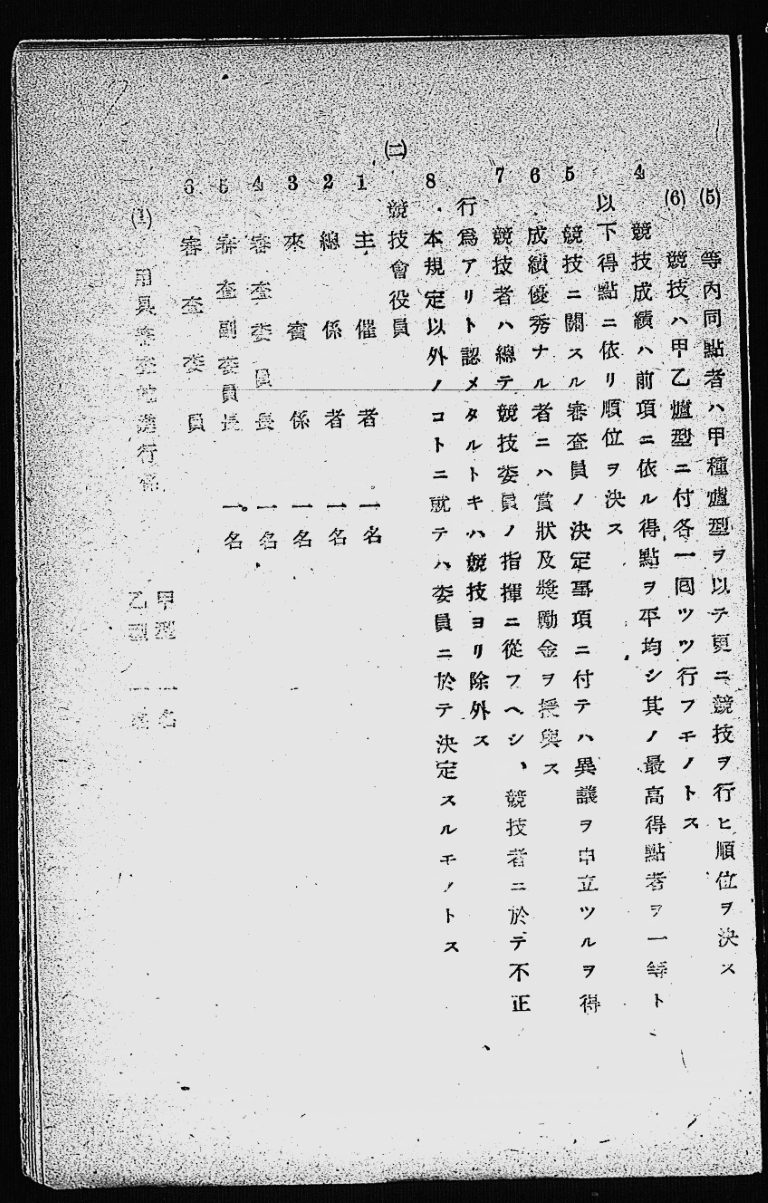 (5) 等內同點者ハ甲種爐型ヲ以テ更ニ競技ヲ行ヒ順位ヲ決ス
(6) 競技ハ甲乙爐型ニ付各一囘ツツ行フモノトス
4 競技成績ハ前項ニ依ル得點ヲ平均シ其ノ最高得點者ヲ一等ト
以下得點ニ依リ順位ヲ決ス
5 競技ニ關スル審査員ノ決定事項ニ付テハ異議ヲ申立ツルヲ得
6 成績優秀ナル者ニハ賞狀及奬勵金ヲ授與ス
7 競技者ハ總テ競技委員ノ指揮ニ從フヘシ、競技者ニ於テ不正
行爲アリト認メタルトキハ競技ヨリ除外ス
8 本規定以外ノコトニ就テハ委員ニ於テ決定スルモノトス
(二) 競技會役員
1 主催者 一名
2 總係者 一名
3 來賓係 一名
4 審査委員長 一名
5 審査副委員長 一名
6 審査委員
(1) 用具審査並進行係 甲型 一名
乙型 一名